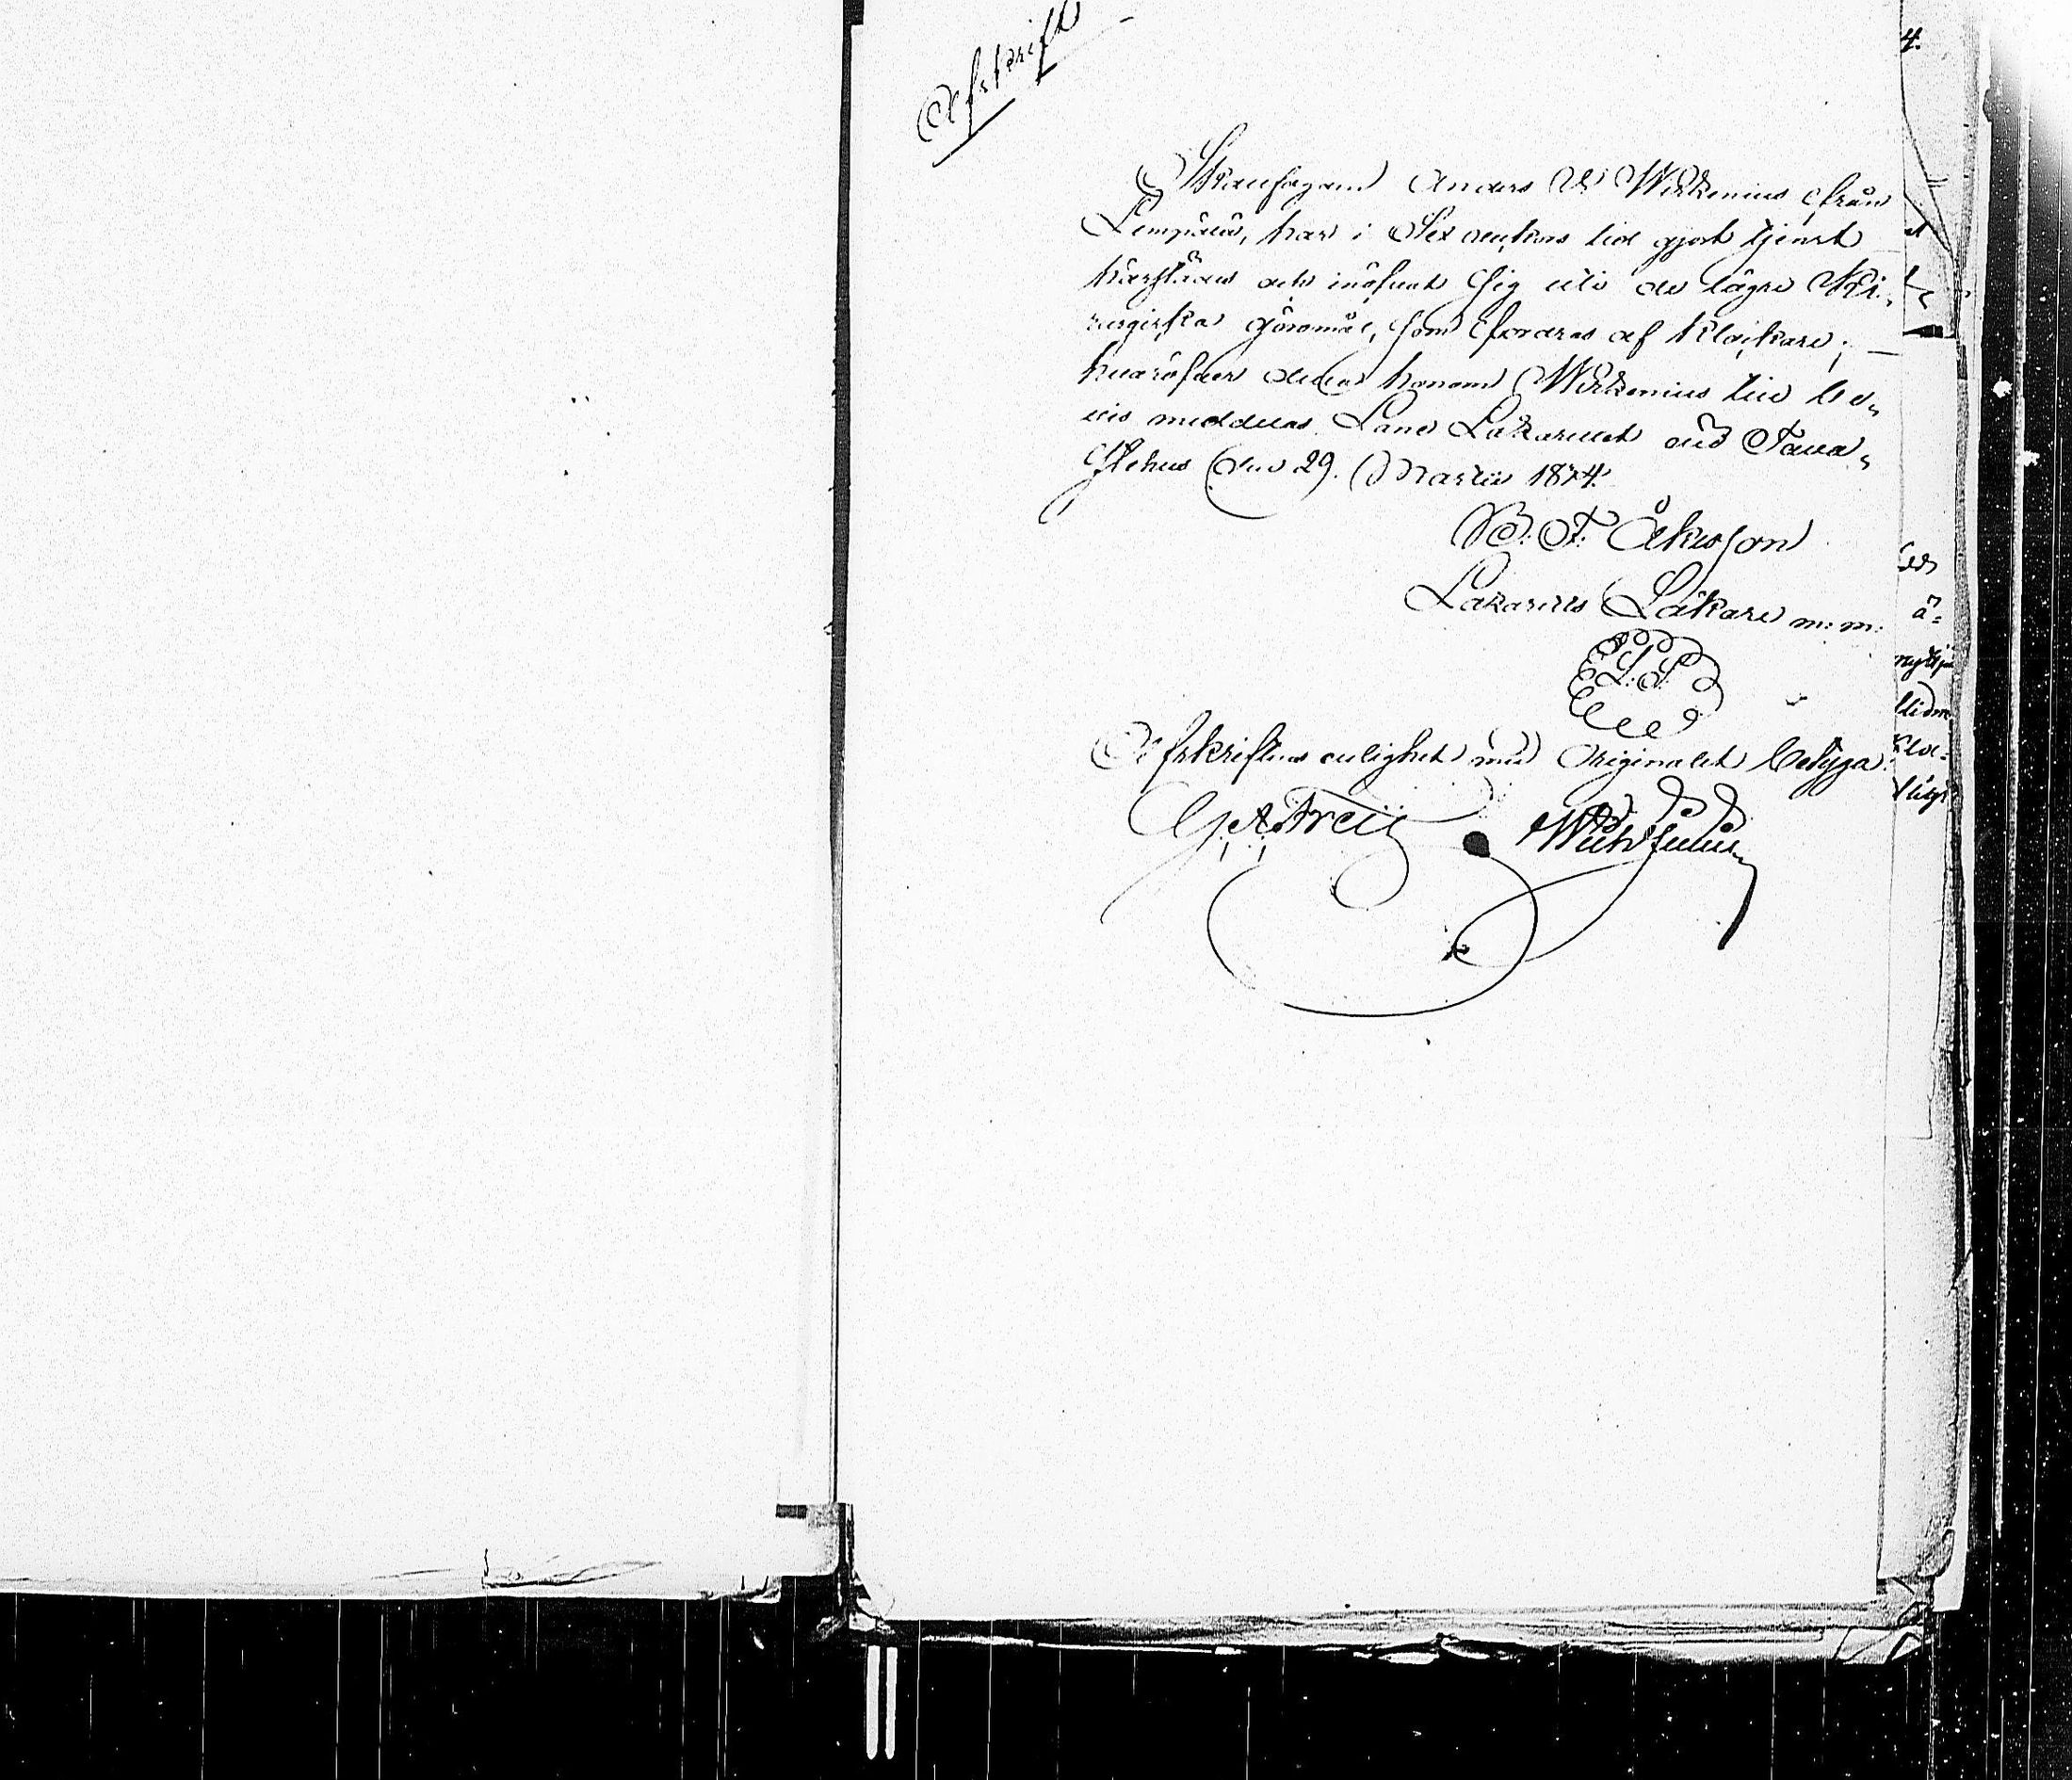 Afskrift
Skaufogam Anders W Wirkenius från
Lempälä, har i Sex veckors tid gjort tjenst
härstädes och inöfvat sig uti de lägre Ki„
rurgiska göromål, som fordras af Klockare;
hvaröfver detta honom Wirkenius till be„
vis meddelas. Läns Lazarettet vid Tava„
stehus den 29. Martii 1874.
B. F. Åkesson
Lazaretts Läkare m: m:
L: S:
Afskriftens enlighet med Originalet betyga: